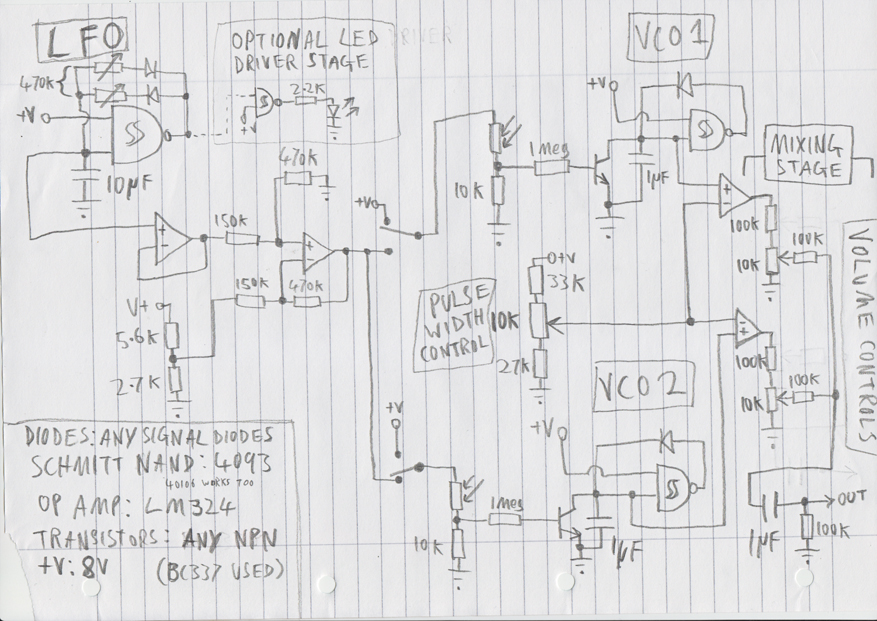 LFO
OPTIONAL LED DRIVER
DRIVER STAGE
2.2K
+V
470K
+V
10µF
150K
470K
150K
470K
V+
5.6K
2.7K
+V
+V
VCO1
+V
1Meg
10K
1µF
MIXING
STAGE
100K
10K
100K
VOLUME CONTROLS
PULSE
WIDTH
CONTROL
+V
33K
10K
27K
100K
10K
100K
VCO2
+V
1Meg
10K
1µF
1µF
OUT
100K
DIODES: ANY SIGNAL DIODES
SCHMITT NAND: 4093
40106 WORKS TOO
OP AMP: LM324
TRANSISTORS: ANY NPN
+V: 8V (BC337 USED)